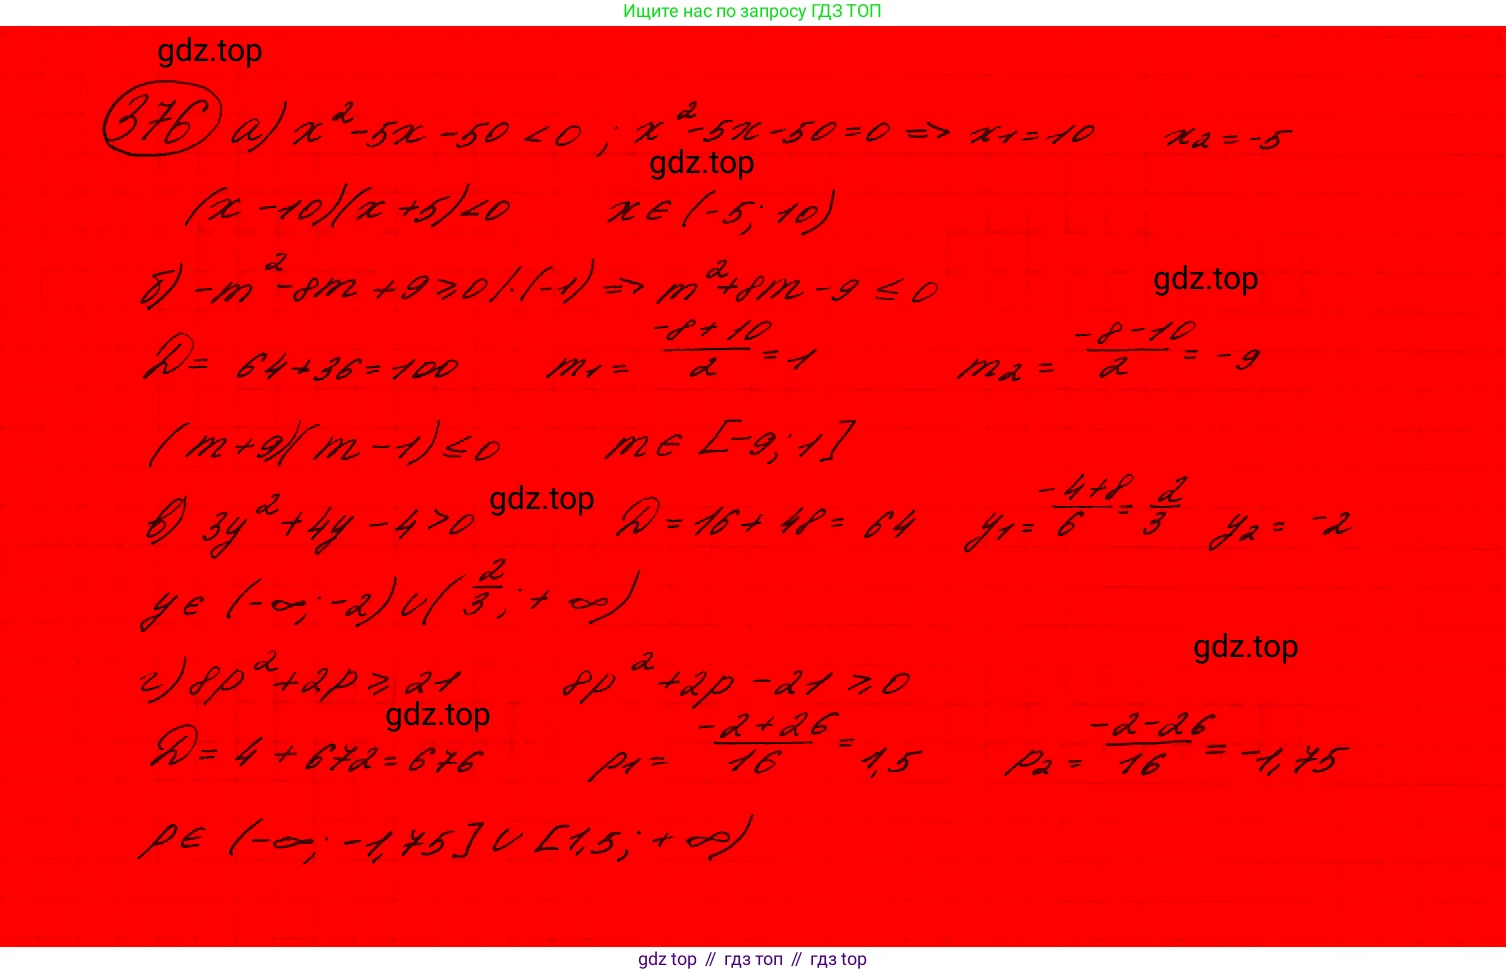 Ищите нас по запросу ГДЗ ТОП
gdz.top
376 а) x²-5x-50<0 ; x²-5x-50=0 => x₁=10 x₂=-5
gdz.top
(x-10)(x+5)<0 x∈(-5; 10)
б) -m²-8m+9≥0 |·(-1) => m²+8m-9≤0
gdz.top
D= 64+36=100 m₁= (-8+10)/2 =1 m₂= (-8-10)/2 = -9
(m+9)(m-1)≤0 m∈[-9; 1]
в) 3y²+4y-4>0 gdz.top D=16+48=64 y₁= (-4+8)/6 = 2/3 y₂= -2
y∈(-∞; -2)∪(2/3; +∞)
gdz.top
г) 8p²+2p≥21 8p²+2p-21≥0
gdz.top
D=4+672=676 p₁= (-2+26)/16 =1,5 p₂= (-2-26)/16 = -1,75
p∈(-∞; -1,75]∪[1,5; +∞)
gdz top // гдз топ // gdz top